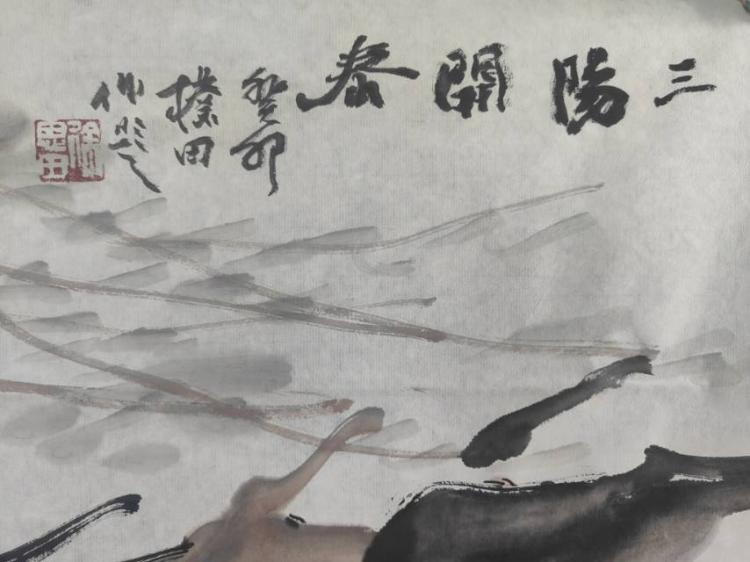 三陽開泰
癸卯
樸田
作题